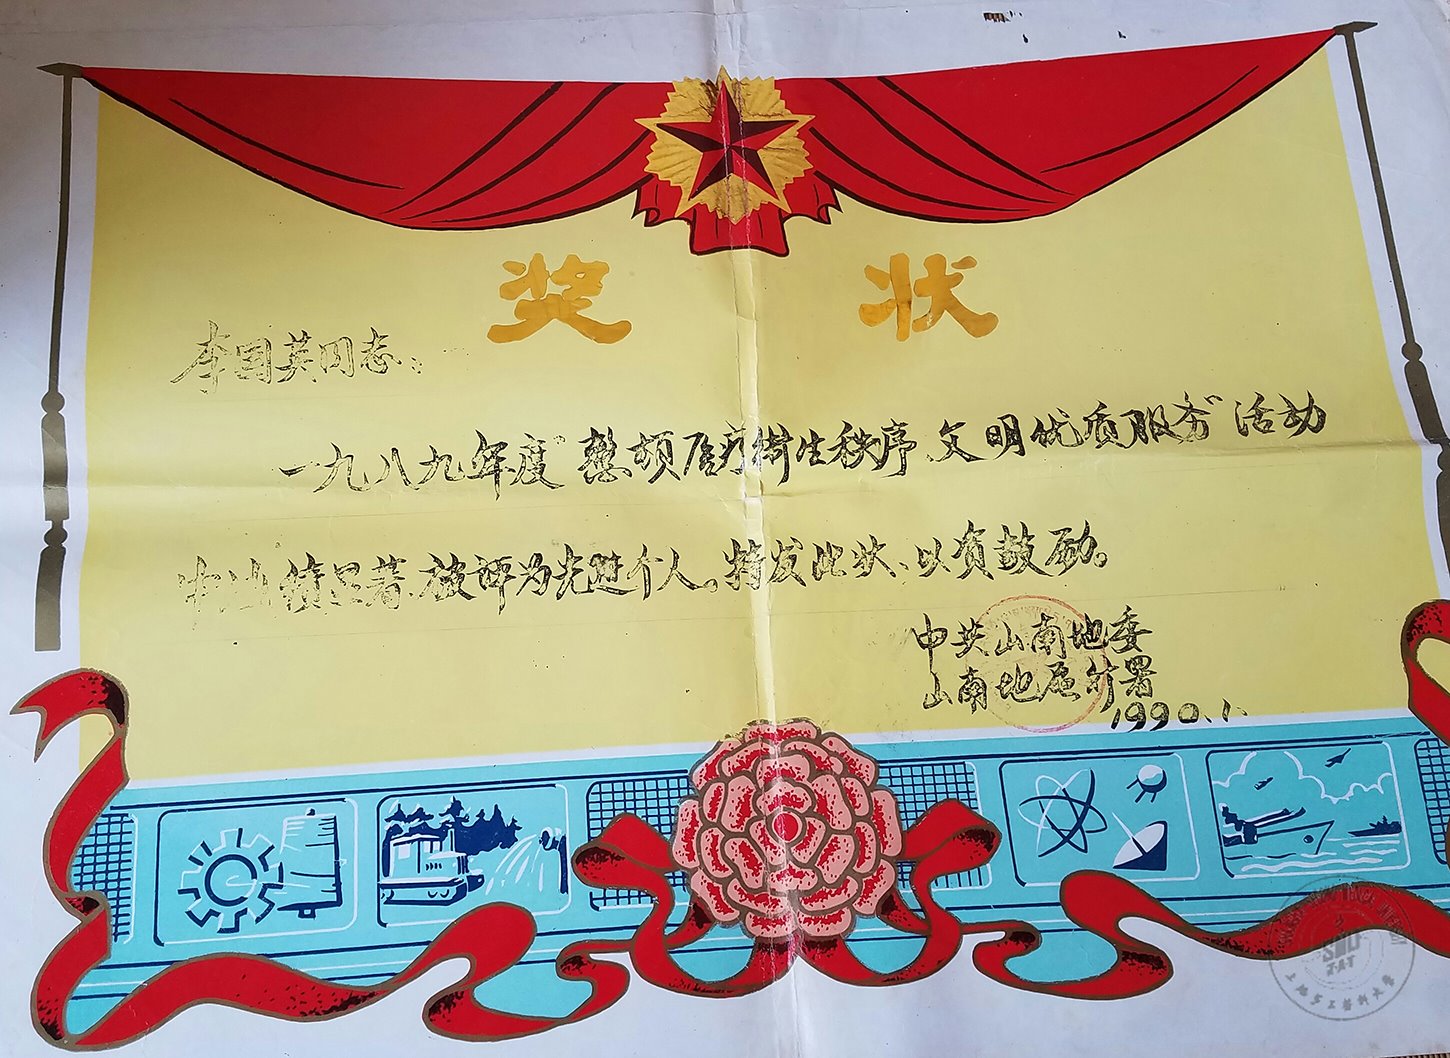 奖 状
李国英同志：
一九八九年度“整顿医疗卫生秩序、文明优质服务”活动
中成绩显著、被评为先进个人。特发此状、以资鼓励。
中共山南地委
山南地区行署
1990.1.